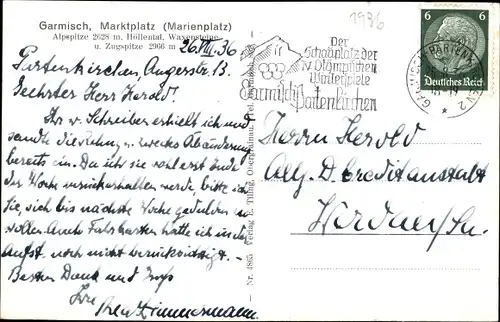 Garmisch, Marktplatz (Marienplatz)
Alpspitze 2628 m, Höllental, Waxensteine
u. Zugspitze 2966 m
26.VIII.36
Partenkirchen, Angerstr. 13.
Herr Herold!
Ihr v. Schreiben erhielt ich und
sandte die zwecks Abänderung
bereits ein. Da ich sie wohl erst Ende
der Woche zurückerhalten werde, bitte ich
Sie, sich bis nächste Woche gedulden zu
wollen. Auch Fahrkarten hatte ich in der
noch nicht berücksichtigt. -
Besten Dank und Gruß
Ihre
Zimmermann.
Nr. 4865 Verlag E.
1936
Der
Schauplatz der
IV Olympischen
Winterspiele
Garmisch
Partenkirchen
GARMISCH-PARTENKIRCHEN 2
6 6
Deutsches Reich
Herrn Herold
Allg. D. Creditanstalt
Werdau/Sa.